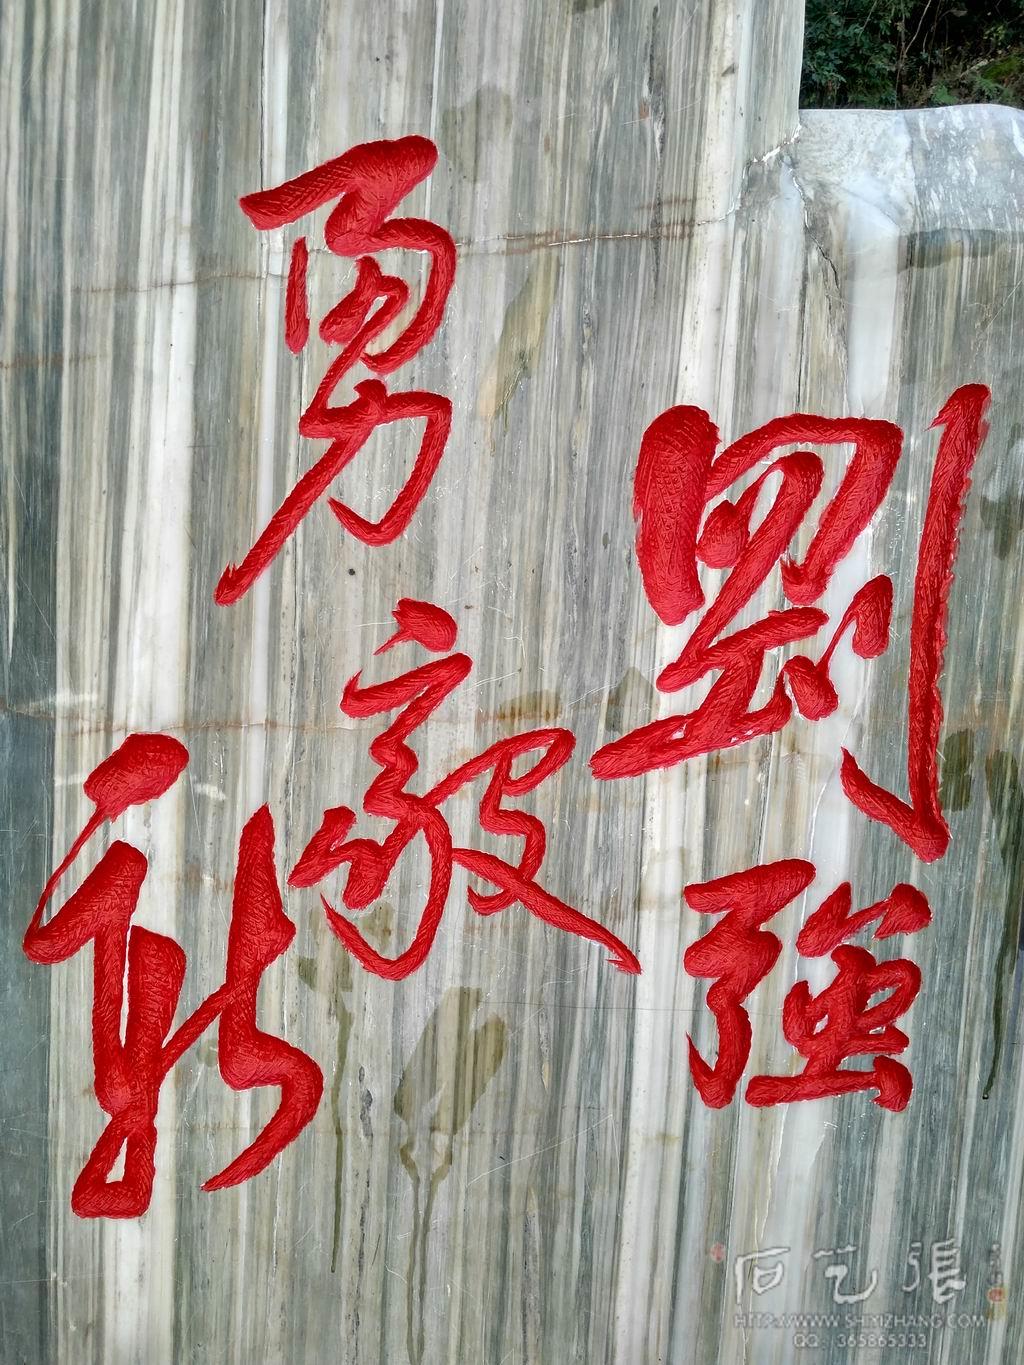 剛強
勇毅
石艺張
HTTP://WWW.SHIYIZHANG.COM
QQ：365865333